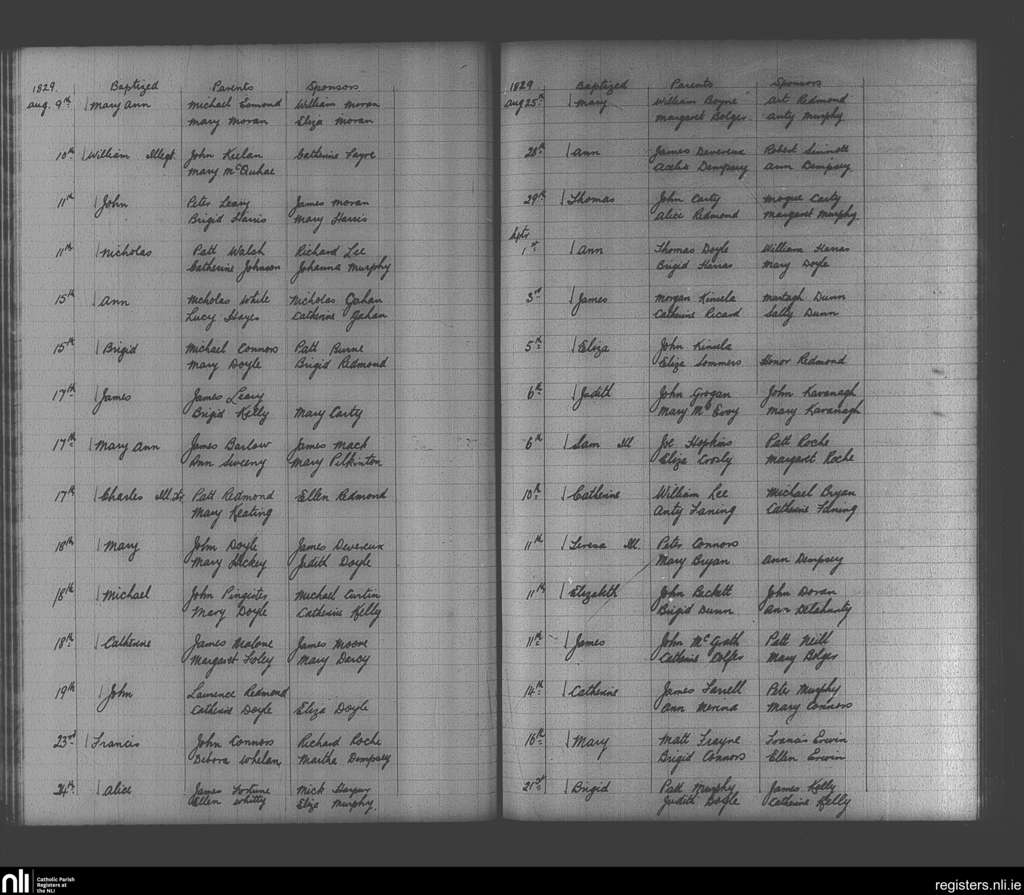 1829. Baptized Parents Sponsors
Aug. 9th Mary Ann Michael Esmond William Moran
Mary Moran Eliza Moran
10th William Illegt. John Keelan Catherine Fayre
Mary McQuhae
11th John Peter Leary James Moran
Brigid Harris Mary Harris
11th Nicholas Patt Walsh Richard Lee
Catherine Johnson Johanna Murphy
15th Ann Nicholas White Nicholas Gahan
Lucy Hayes Catherine Gahan
15th Brigid Michael Connors Patt Burne
Mary Doyle Brigid Redmond
17th James James Leary
Brigid Kelly Mary Carty
17th Mary Ann James Barlow James Mack
Ann Sweeny Mary Pilkinton
17th Charles Patt Redmond Ellen Redmond
Mary Keating
18th Mary John Doyle James Devereux
Mary Hickey Judith Doyle
18th Michael John Pingister Michael Curtin
Mary Doyle Catherine Kelly
18th Catherine James Malone James Moore
Margaret Foley Mary Darcy
19th John Laurence Redmond
Catherine Doyle Eliza Doyle
23rd Francis John Connors Richard Roche
Debora Whelan Martha Dempsey
24th Alice James Fortune Mick
Ellen Whitty Eliza Murphy
1829 Baptized Parents Sponsors
Aug 25th Mary William Boyne Art. Redmond
Margaret Bolger Anty Murphy
28th Ann James Devereux Robert Sinnott
Dempsey Ann Dempsey
29th Thomas John Carty Mogue Carty
Alice Redmond Margaret Murphy.
Septr
1st Ann Thomas Doyle William Harras
Brigid Harras Mary Doyle
3rd James Morgan Kinsela Murtagh Dunn
Catherine Ricard Sally Dunn
5th Eliza John Kinsela
Eliza Sommers Honor Redmond
6th Judith John Grogan John Kavanagh
Mary McEvoy Mary Kavanagh
6th Sam Ill. Joe Hopkins Patt Roche
Eliza Crosly Margaret Roche
10th Catherine William Lee Michael Bryan
Anty Laning Catherine Laning
11th Teresa Ill. Peter Connors
Mary Bryan Ann Dempsey
11th Elizabeth John Beckett John Doran
Brigid Dunn Ann Delahunty
11th James John McGrath Patt Neill
Catherine Dolfer Mary Bolger
14th Catherine James Farrell Peter Murphy
Ann Merina Mary Connors
16th Mary Matt Frayne Francis Erwin
Brigid Connors Ellen Erwin
21st Brigid Patt Murphy James Kelly
Judith Doyle Catherine Kelly
nli Catholic Parish
Registers at
the NLI
registers.nli.ie